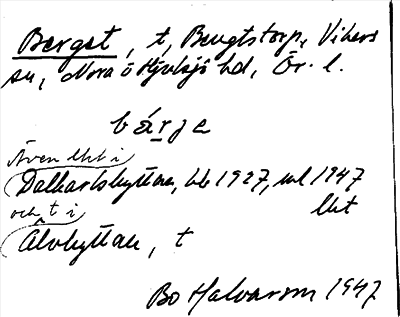 Berget, t, Bengtstorp, Vikers
sn, Nora o Hjulsjö hd, Ör. l.
bárjə
Även lht i
Dalkarlshyttan, hb 1927, ml 1947
och t i lht
Älvhyttan, t
Bo Halvarson 1947